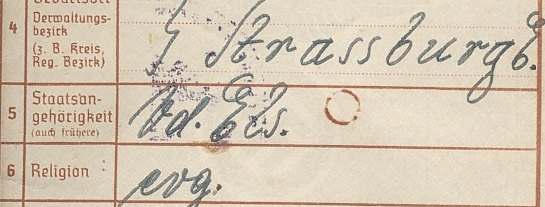 4 Verwaltungs-
bezirk
(z. B. Kreis,
Reg. Bezirk)
Strassburg
5 Staatsan-
gehörigkeit
(auch frühere)
Els.
6 Religion
evg.